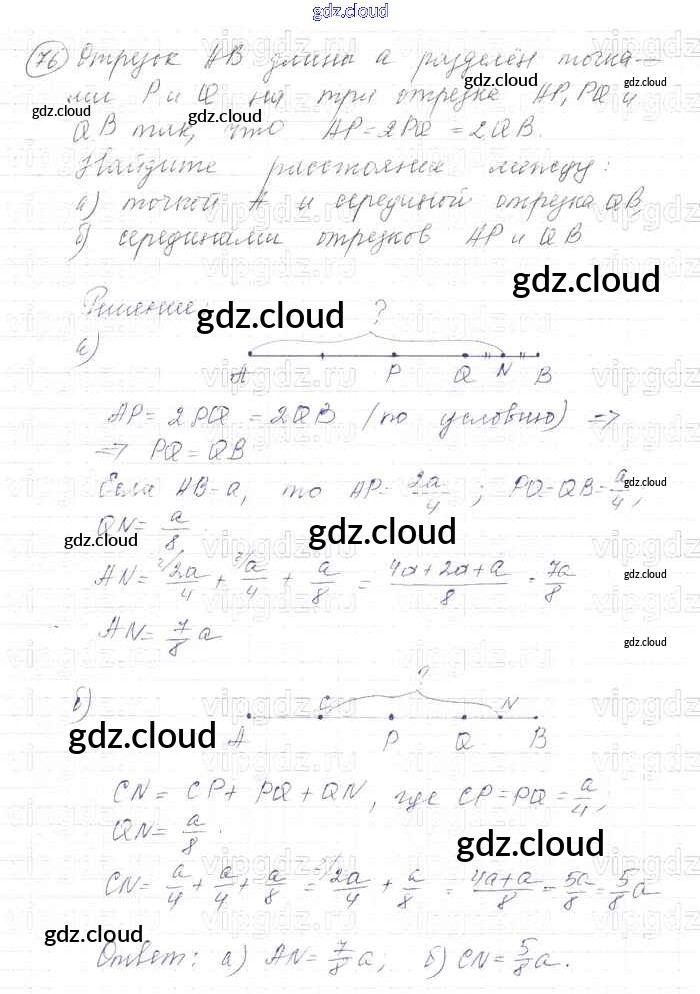 gdz.cloud
76 Отрезок AB длины a разделён точка-
ми P и Q на три отрезка AP, PQ и
gdz.cloud
gdz.cloud
gdz.cloud
QB так, что AP = 2PQ = 2QB.
Найдите расстояние между:
а) точкой A и серединой отрезка QB,
б) серединами отрезков AP и QB
gdz.cloud
Решение:
gdz.cloud
?
а)
A P Q N B
AP = 2PQ = 2QB (по условию) =>
=> PQ = QB
Если AB = a, то AP = 2a/4 ; PQ = QB = a/4,
gdz.cloud
QN = a/8
gdz.cloud
gdz.cloud
AN = 2a/4 + a/4 + a/8 = 4a+2a+a/8 = 7a/8
gdz.cloud
AN = 7/8 a
gdz.cloud
?
б)
C N
A P Q B
gdz.cloud
CN = CP + PQ + QN, где CP = PQ = a/4;
QN = a/8.
gdz.cloud
CN = a/4 + a/4 + a/8 = 2a/4 + a/8 = 4a+a/8 = 5a/8 = 5/8 a
gdz.cloud
Ответ: а) AN = 7/8 a; б) CN = 5/8 a.